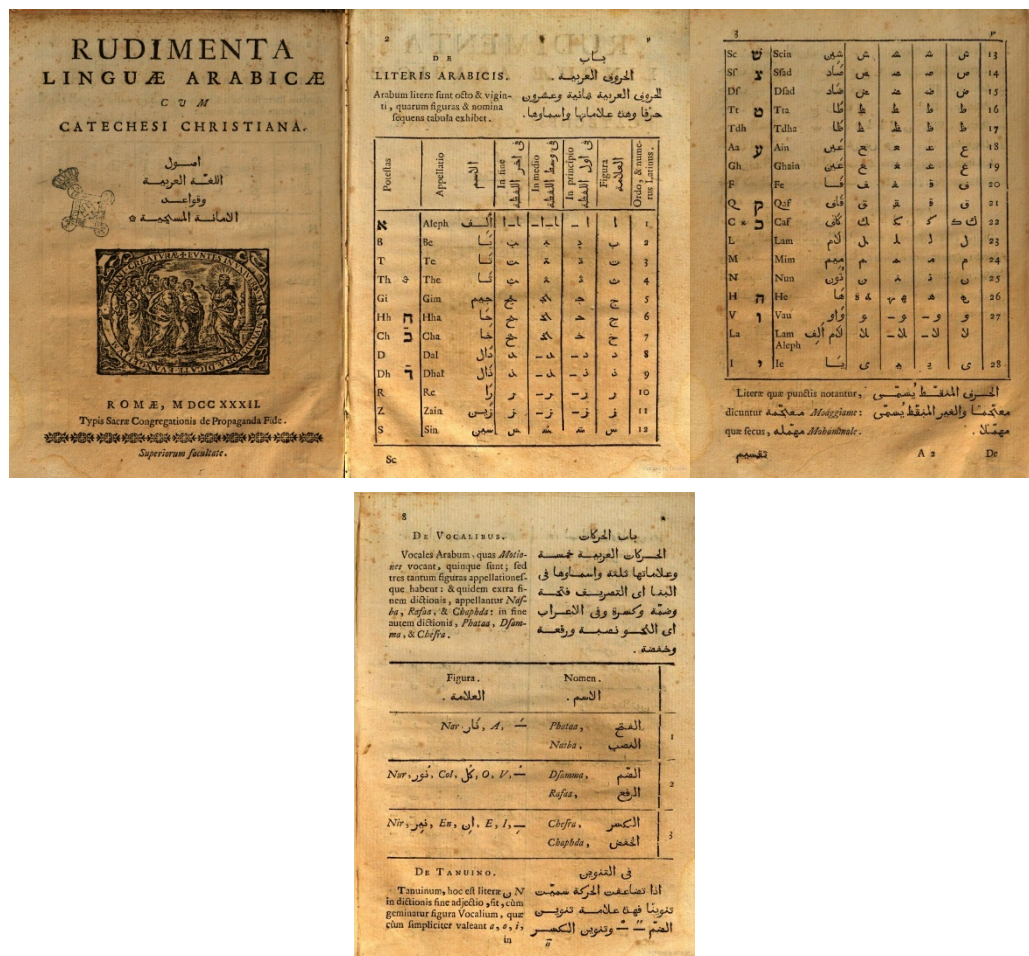 RUDIMENTA
LINGUÆ ARABICÆ
CUM
CATECHESI CHRISTIANA.
اصول
اللغة العربية
وقواعد
الامانة المسيحية
ROMÆ, MDCCXXXII.
Typis Sacræ Congregationis de Propaganda Fide.
Superiorum facultate.
2
DE
LITERIS ARABICIS.
Arabum literæ sunt octo & vigin-
ti, quarum figuras & nomina
sequens tabula exhibet.
باب
الحروف العربية .
الحروف العربية ثمانية وعشرون
حرفًا وهذه علاماتها واسماوها .
Potestas Appellatio الاسم In fine فى اخر اللفظة In medio فى وسط اللفظة In principio فى اول اللفظة Figura العلامة Ordo, & nume-rus Latinus.
א Aleph 1
B Be 2
T Te 3
Th The 4
Gi Gim جيم 5
Hh Hha 6
Ch Cha 7
D Dal دَال 8
Dh Dhal ذَال 9
R Re رَا 10
Z Zain زَين 11
S Sin سين 12
Sc
3
Sc ש Scin شين 13
Sf צ Sfad صَاد 14
Df Dfad ضَاد 15
Tt ט Tta طَا 16
Tdh Tdha ظَا 17
Aa ע Ain عَين 18
Gh Ghain غَين 19
F Fe فَا 20
Q ק Qaf قَاف 21
C Caf كَاف 22
L Lam لَام 23
M Mim ميم 24
N Nun نُون 25
H ה He هَا 26
V ו Vau وَاو 27
La Lam Aleph لَام اَلِف لا
I י Ie يَا 28
Literæ quæ punctis notantur,
dicuntur معجّمة Moággiame:
quæ secus, مهمَله
الحرف المنقّط يُسمّى
معجّمًا والغير المنقّط يُسمّى
مهمَلًا .
تقسيم A 2 De
8
DE VOCALIBUS.
Vocales Arabum, quas Motio-
nes vocant, quinque sunt; sed
tres tantum figuras appellationes-
que habent: & quidem extra fi-
nem dictionis, appellantur Nas-
ba, Rafaa, & Chaphda: in fine
autem dictionis, Phataa, Dsam-
ma, & Chesra.
باب الحركات
الحركات العربية خمسة
وعلاماتها ثلثة واسماوها فى
البنا اى التصريف فتحة
وضمّة وكسرة وفى الاعراب
اى النّحو نصبة ورفعة
وخفضة .
Figura. Nomen.
العلامة . الاسم .
Nar نَار, A, Phataa, الفتح 1
Nasba, النصب
Nur, نُور, Col, كُل, O, V, Dsamma, الضّم 2
Rafaa, الرفع
Nir, نِير, En, اِن, E, I, Chesra, الكسر 3
Chaphda, الخفض
DE TANUINO.
Tanuinum, hoc est literæ ن N
in dictionis fine adjectio, fit, cùm
geminatur figura Vocalium, quæ
cùm simpliciter valeant a, o, i,
in
فى التنوين
اذا تضاعفت الحركة سميّت
تنوينًا فهذه علامة تنوين
الضّم وتنوين الكسر